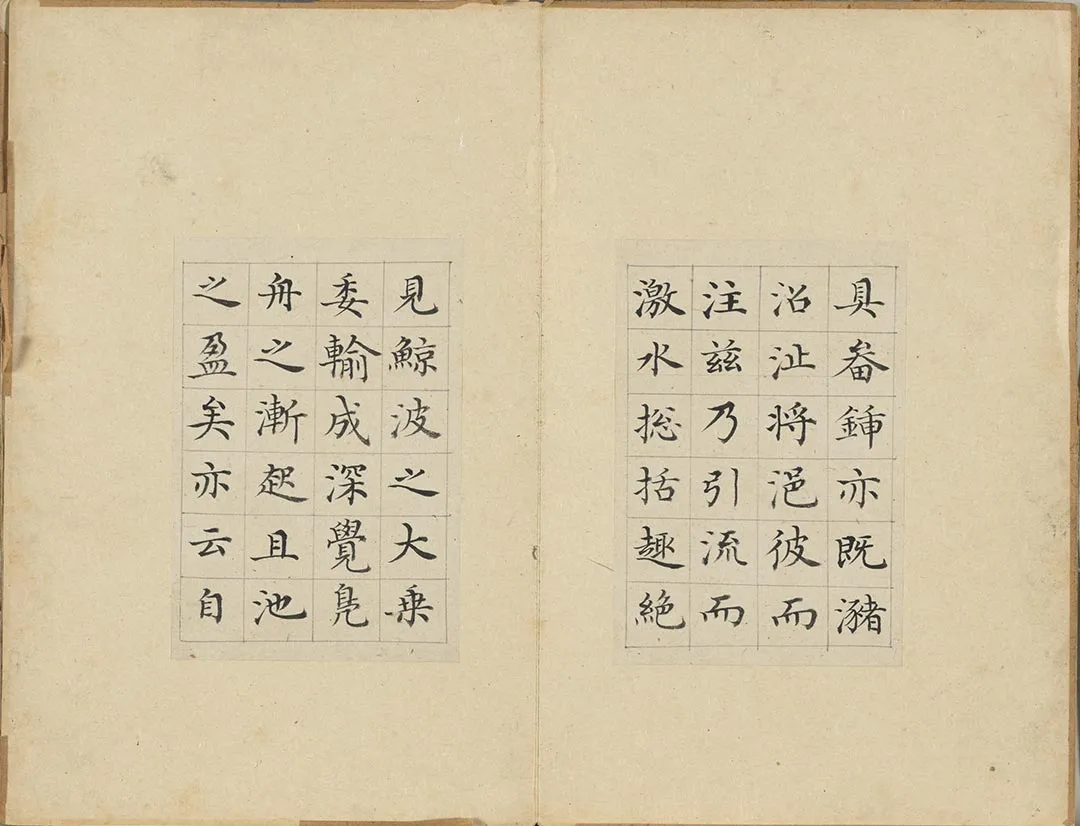 具畚鍤亦既瀦
沼沚将浥彼而
注兹乃引流而
激水捴括趣絶
見鯨波之大乗
委輸成深覺鳧
舟之漸起且池
之盈矣亦云自